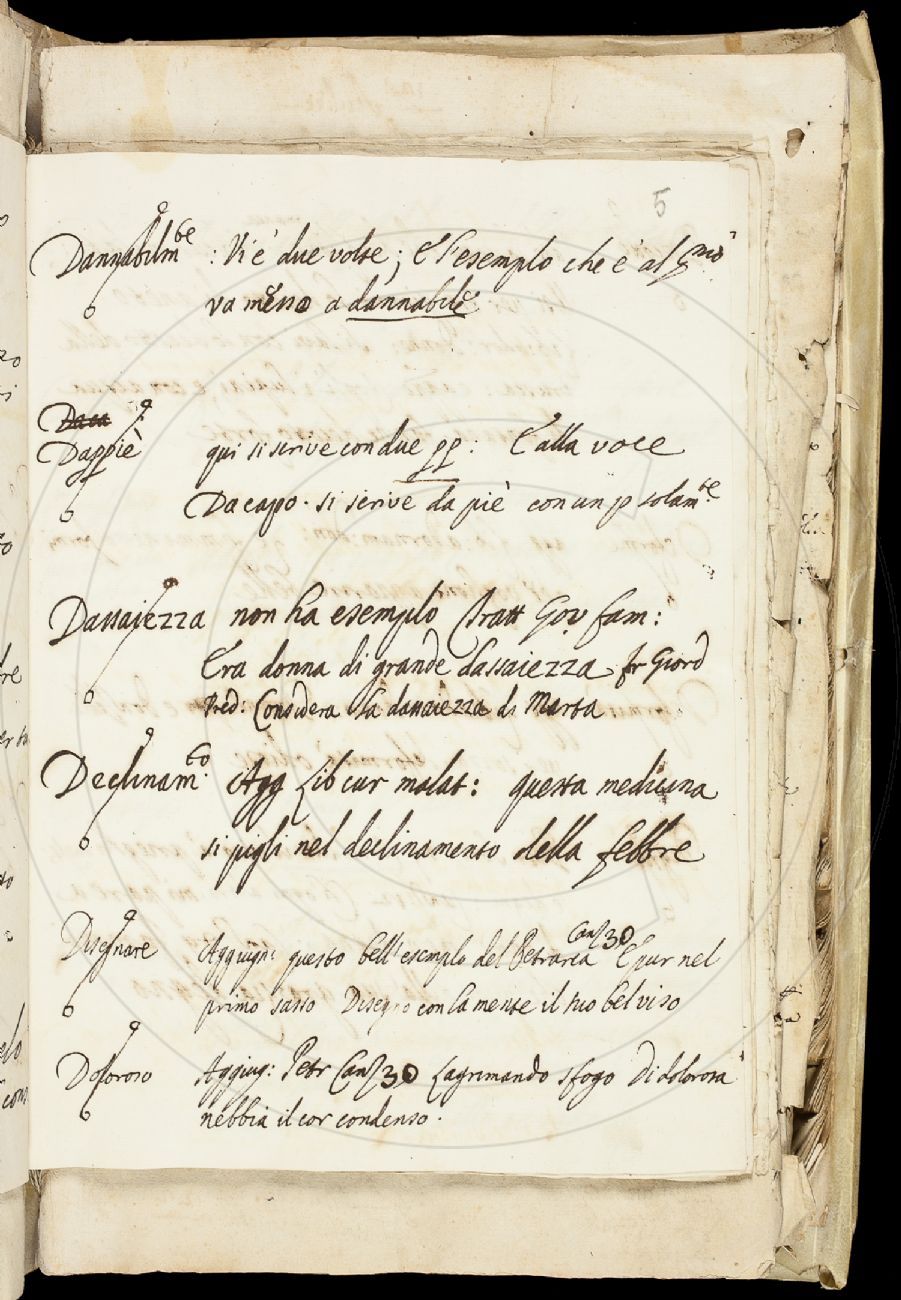 5
Dannabilmte : Vi è due volte; E l'esempio che è al pmo
va messo a dannabile
Daca
Dappiè qui si scrive con due pp: E alla voce
Da capo. si scrive da piè con un p solamte
Dassaiezza non ha esempio Tratt Gov fam:
Era donna di grande dassaiezza fr Giord
Pred: Considera la dassaiezza di Marta
Declinamto. Agg Lib cur malat: questa medicina
si pigli nel declinamento della febbre
Disegnare Aggiugn: questo bell'esempio del Petrarca Canz 30 E pur nel
primo sasso Disegno con la mente il suo bel viso
Doloroso Aggiug: Petr Canz 30 Lagrimando sfogo Di dolorosa
nebbia il cor condenso.